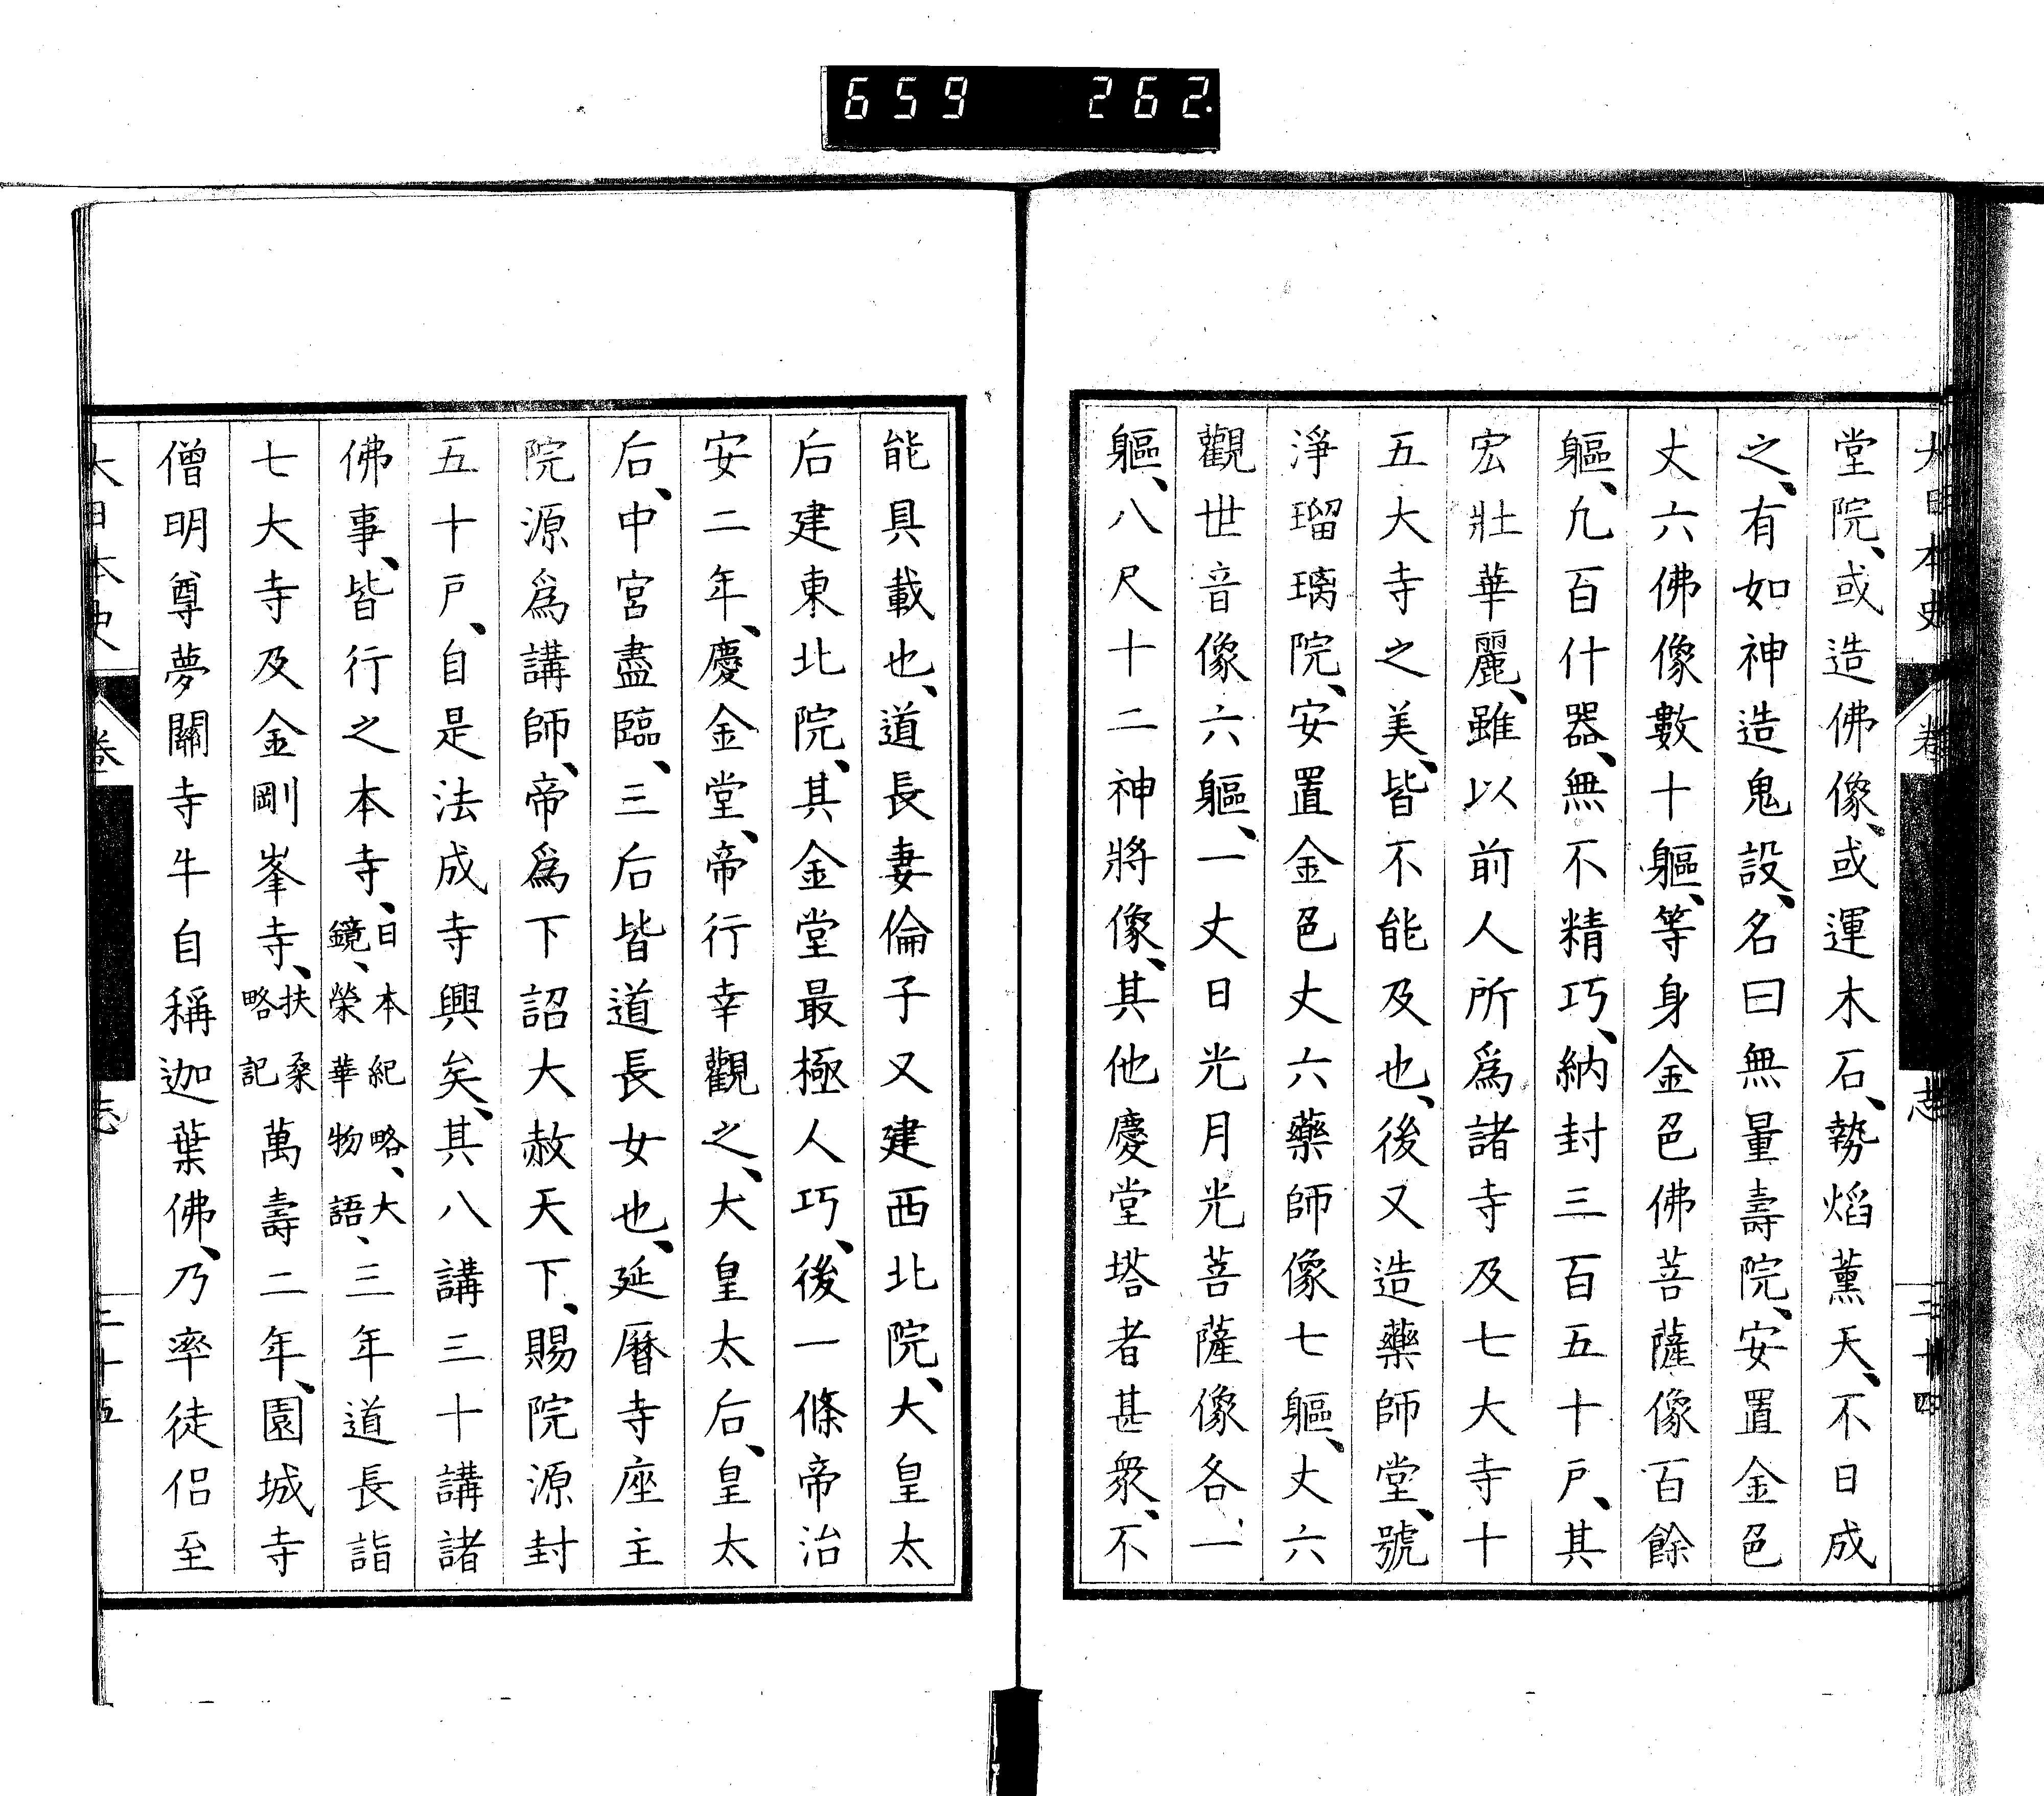 659 262.
大日本史 卷 志 二十四
堂院、或造佛像、或運木石、勢焰薰天、不日成
之、有如神造鬼設、名曰無量壽院、安置金色
丈六佛像數十軀、等身金色佛菩薩像百餘
軀、九百什器、無不精巧、納封三百五十戶、其
宏壯華麗、雖以前人所爲諸寺及七大寺十
五大寺之美、皆不能及也、後又造藥師堂、號
淨瑠璃院、安置金色丈六藥師像七軀、丈六
觀世音像六軀、一丈日光月光菩薩像各一
軀、八尺十二神將像、其他慶堂塔者甚衆、不
能具載也、道長妻倫子又建西北院、大皇太
后建東北院、其金堂最極人巧、後一條帝治
安二年、慶金堂、帝行幸觀之、大皇太后、皇太
后、中宮盡臨、三后皆道長女也、延曆寺座主
院源爲講師、帝爲下詔大赦天下、賜院源封
五十戶、自是法成寺興矣、其八講三十講諸
佛事、皆行之本寺、日本紀略、大鏡、榮華物語、三年道長詣
七大寺及金剛峯寺、扶桑略記萬壽二年、園城寺
僧明尊夢關寺牛自稱迦葉佛、乃率徒侶至
大日本史 卷 志 二十五